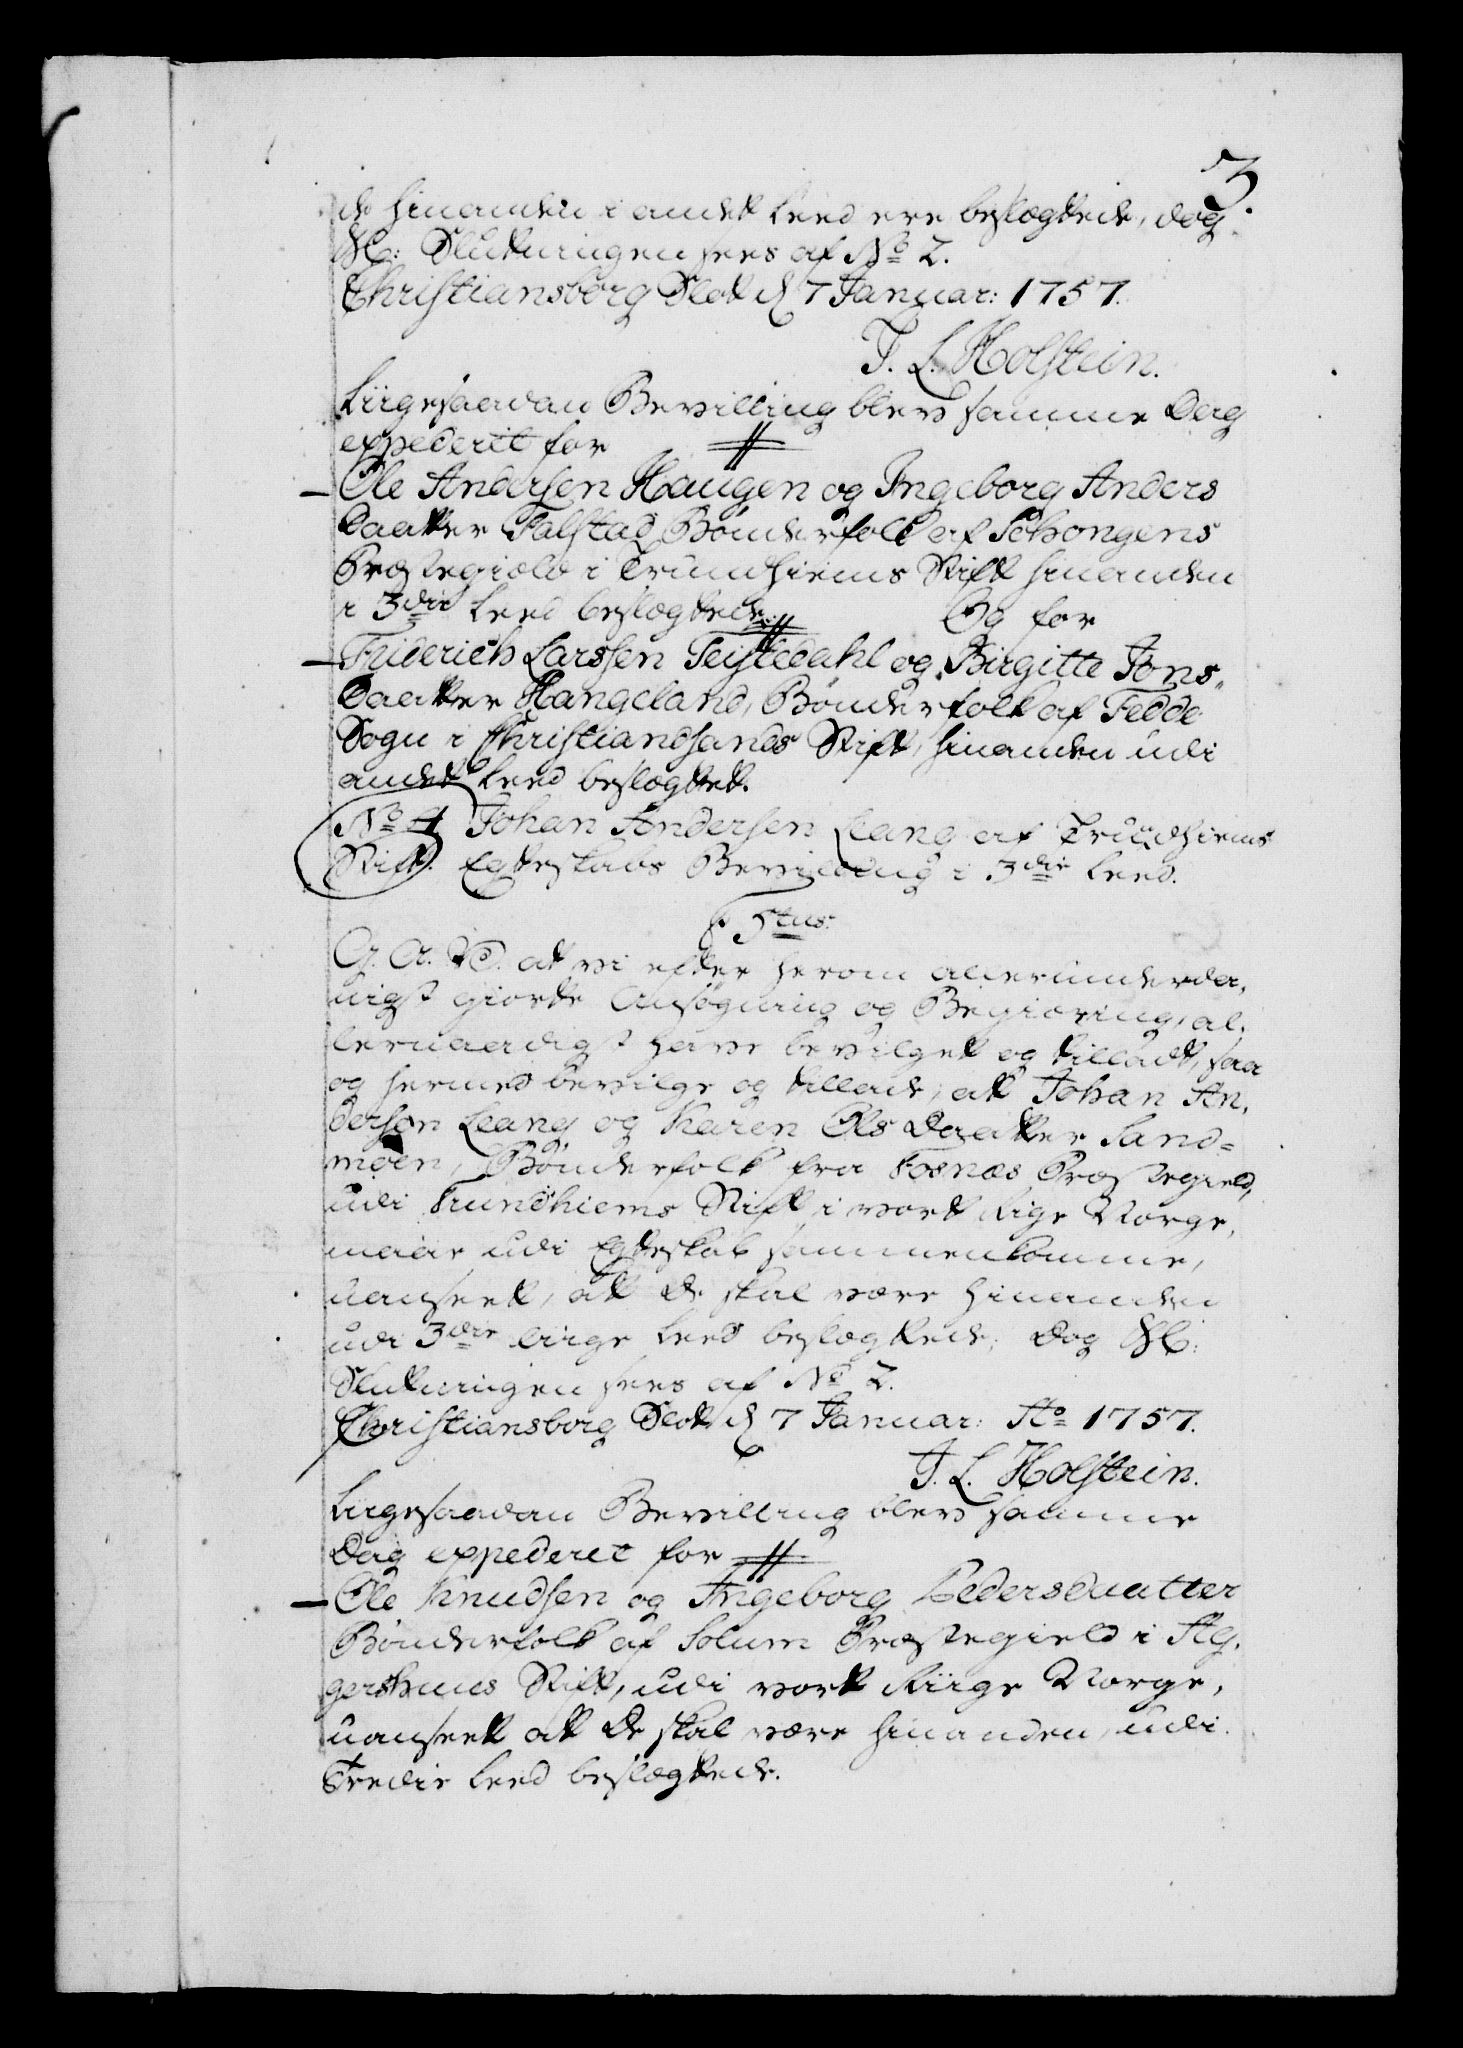 3.
de hinanden i andet Leed ere beslægtede, dog
Sc: Slutningen sees af No 2.
Christiansborg Slot d 7 Januar: 1757.
J. L. Holstein.
Liigesaadan Bevilling blev samme Dag
expederit for
Ole Andersen Haugen og Ingeborg Anders
Daatter Falstad Bønderfolk af Schongens
Præstegield i Trundhiems Stift hinanden
i 3die Leed beslægtede. Og for
Friderich Larssen Teistedahl og Birgitte Jons-
Daatter Hangeland, Bønderfolk af Fedde
Sogn i Christiandsands Stift, hinanden udi
andet Leed beslægtet.
No 4 Johan Andersen Leang af Trundhiems
Stift. Egteskabs Bevilling i 3die Leed.
F 5tus.
G. A. V. at vi efter herom allerunderda-
nigst giorte Ansøgning og Begiæring, al-
lernaadigst have bevilget og tilladt, saa
og hermed bevilge og tillade, at Johan An-
dersen Leang og Karen Ols Daatter Sand-
moen, Bønderfolk fra Fosnæs Præstegield,
udi Trundhiems Stift i vort Rige Norge,
maae udi Egteskab sammenkomme,
uanseet, at de skal være hinanden
udi 3die liige Leed beslægtede; Dog Sc:
Slutningen sees af No 2.
Christiansborg Slot d 7 Januar: Ao 1757.
J. L. Holstein.
Liigesaadan Bevilling blev samme
Dag expederet for
Ole Knudsen og Ingeborg Pedersdaatter
Bønderfolk af Solum Præstegield i Ag-
gershuus Stift, udi vort Riige Norge,
uanseet at de skal være hinanden udi
Tredie Leed beslægtede.